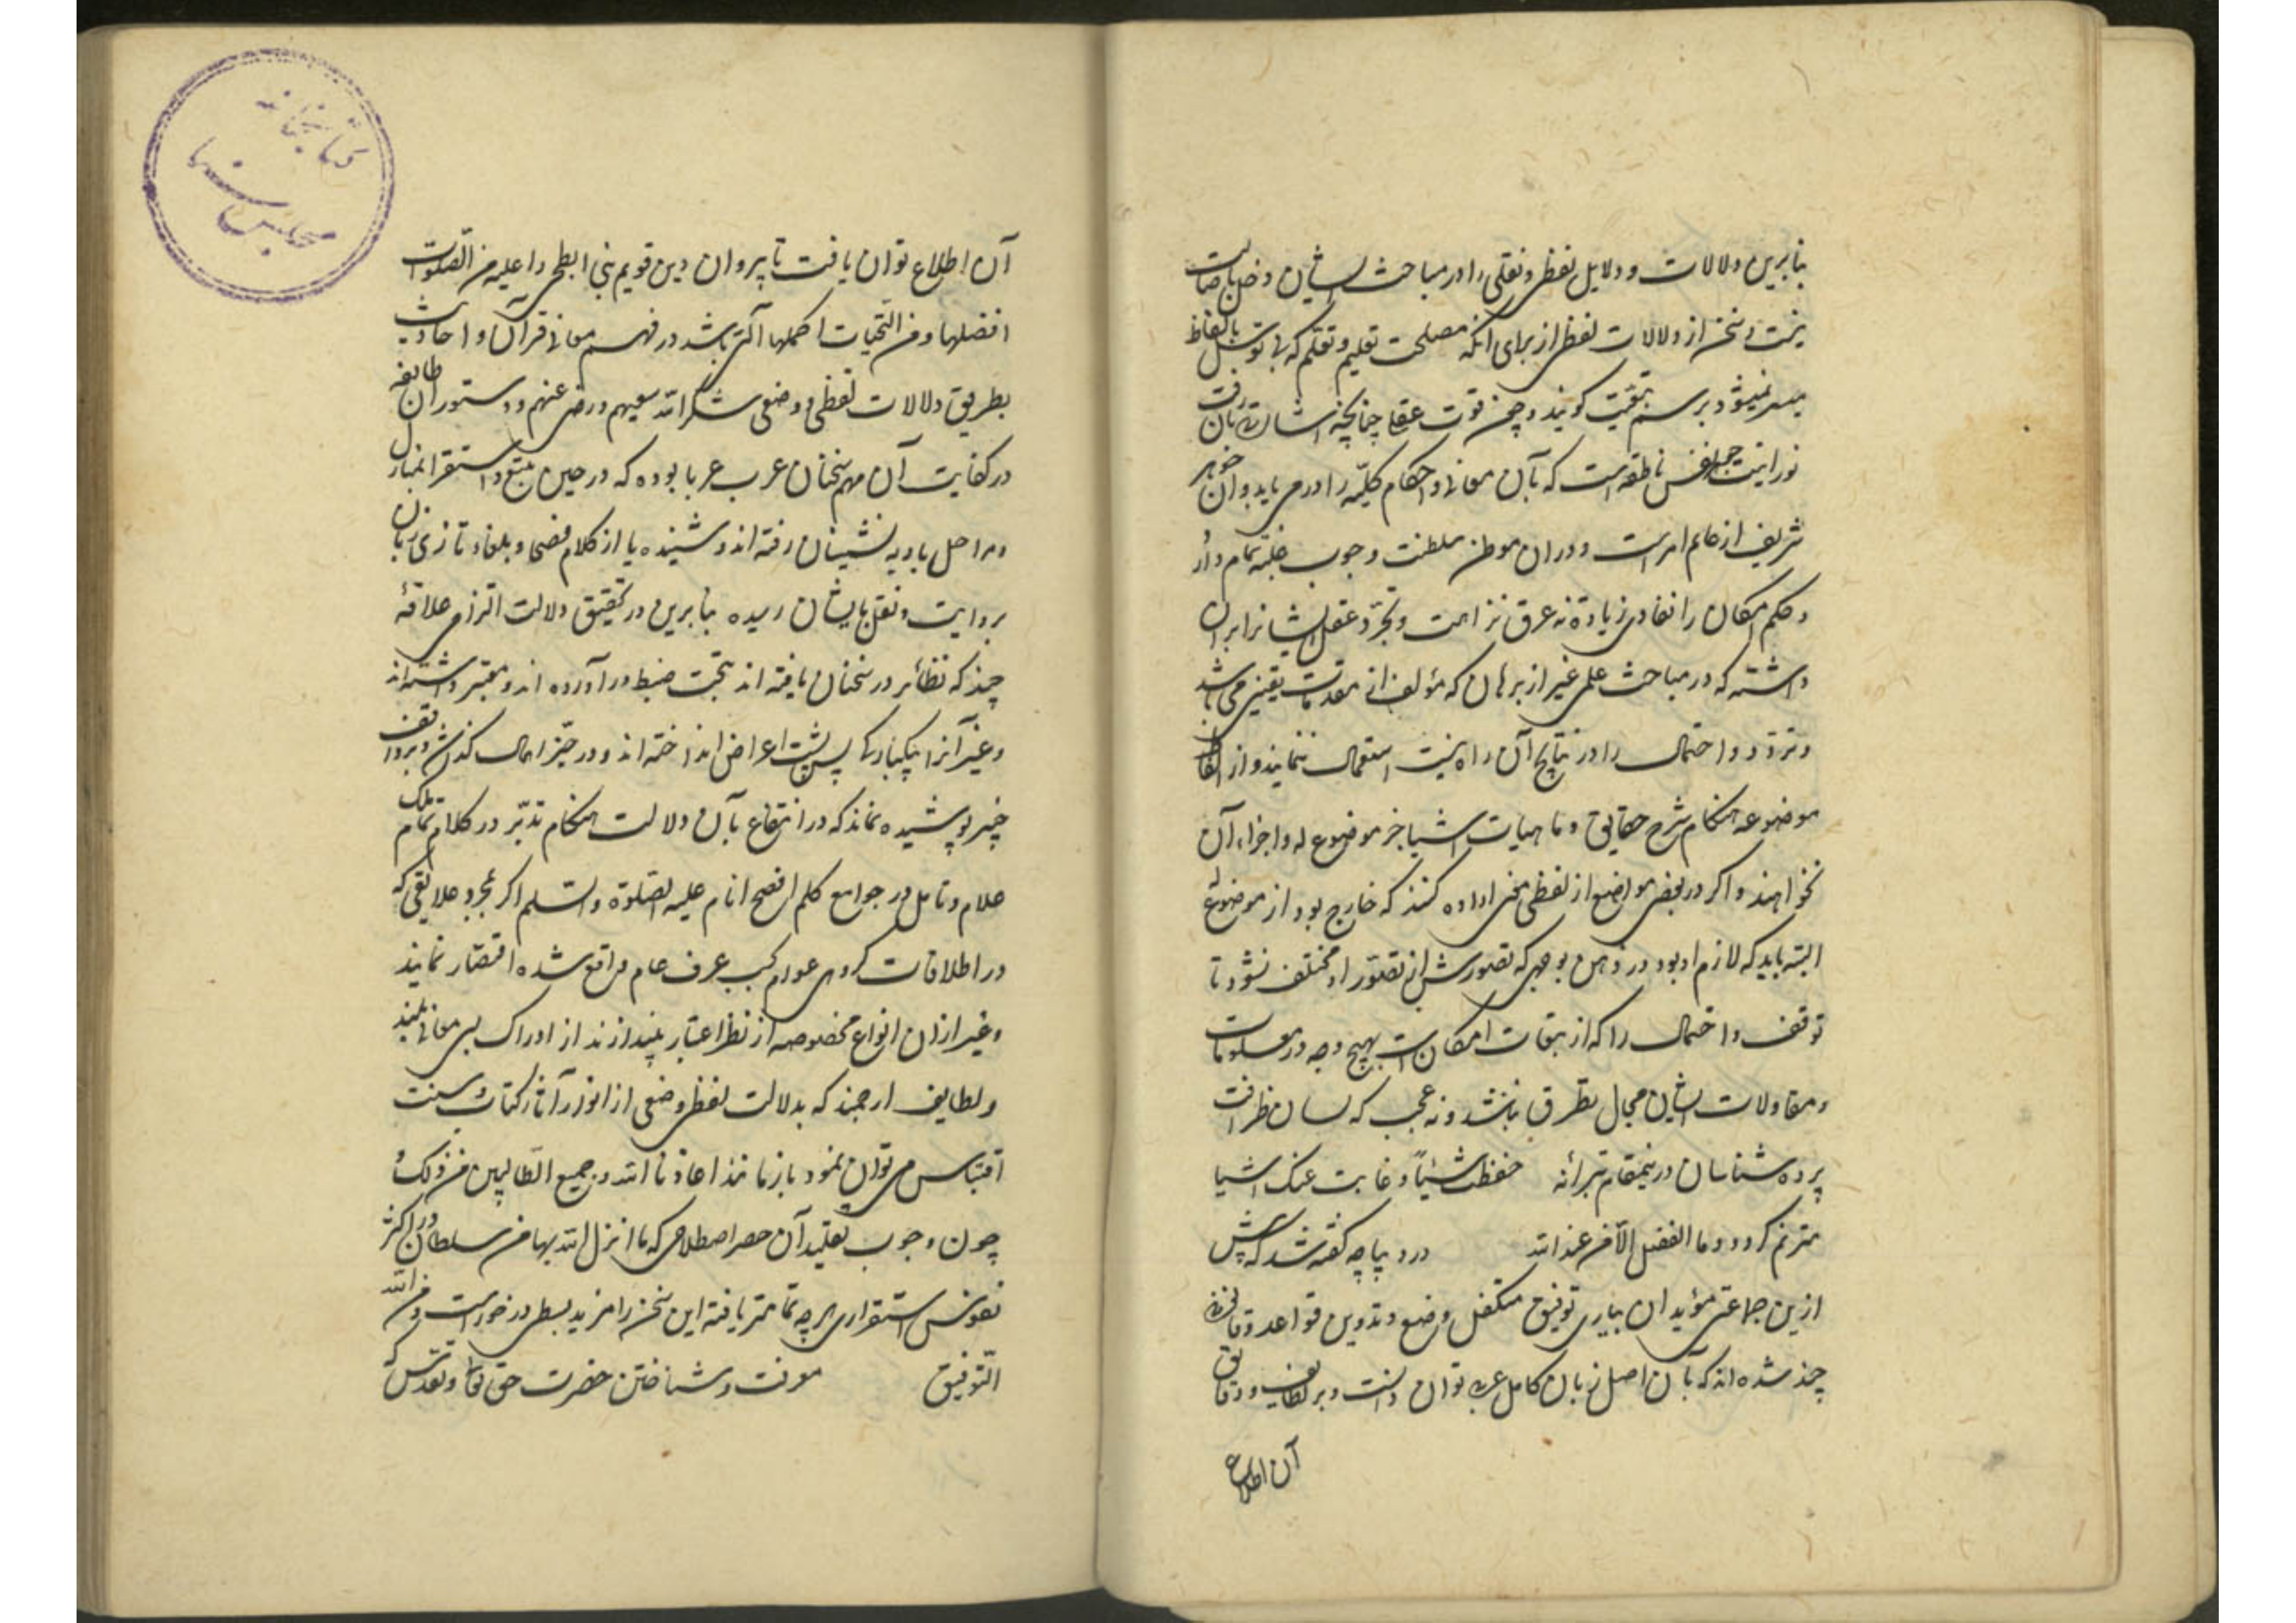 بنابرین دلالات و دلایل لفظی و نقلی را در مباحث ایشان دخل باصالت
نیست و سخن از دلالات لفظی از برای آنکه مصلحت تعلیم و تعلم که بی توسل بالفاظ
میسر نمیشود برسم تبعیت کویند و چون قوت عقلی چنانچه اشارتی بآن رفت
نورانیت نفس ناطقه است که بآن معانی و احکام کلیه را در می یابد و آن جوهر
شریف از عالم امرست و در ان موطن سلطنت وجوب غلبه تمام دارد
و حکم امکان را نفادی زیادة نه عرق نزاهت و تجرد عقل ایشانرا بر ان
داشته که در مباحث علمی غیر از برهان که مؤلف از مقدمات یقینی می باشد
و تردد و احتمال را در نتایج آن راه نیست استعمال ننمایند و از الفاظ
موضوعه هنکام شرح حقایق و ماهیات اشیا جز موضوع له و اجزاء آن
نخواهند و اکر در بعضی مواضع از لفظی معنی اراده کنند که خارج بود از موضوع له
البته باید که لازم او بود در ذهن بوجهی که تصورش از تصور او مختلف نشود تا
توقف و احتمال را که از تبعات امکان است بهیچ وجه در معلومات
و مقاولات ایشان مجال تطرق نباشد و نه عجب که لسان ظرافت
پرده شناسان درینمقام بترانه حفظت شیئا و غابت عنک اشیا
مترنم کردد و ما الفضل الا من عند الله در دیباچه کفته شد که پیش
ازین جماعتی مؤیدان بیاری توفیق متکفل وضع و تدوین قواعد و قانونی
چند شده اند که بآن اصل زبان کامل عرب توان دانست و بر لطایف و دقایق
آن اطلاع
کتابخانه
مجلس سنا
آن اطلاع توان یافت تا پیروان دین قویم نبی ابطحی را علیه من الصلوات
افضلها و من التحیات اکملها آلتی باشد در فهم معانی قرآن و احادیث
بطریق دلالات لفظی و وضعی شکر الله سعیهم و رضی عنهم و دستور آن طایفه
در کفایت آن مهم سخنان عرب عربا بوده که در حین تتبع و استقرا بمنازل
و مراحل بادیه نشینان رفته اند و شنیده یا از کلام فصحا و بلغاء تازی زبان
بروایت و نقل بایشان رسیده بنابرین در تحقیق دلالت التزامی علاقۀ
چند که نظائر در سخنان یافته اند بتحت ضبط در آورده اند و معتبر داشته اند
و غیر آنرا بیکبارکی پس پشت اعراض انداخته اند و در حیز اهمال کذاشته و بر واقف
خبیر پوشیده نماند که در انتفاع بآن دلالت هنکام تدبر در کلام تمام ملک
علام و تامل در جوامع کلم افصح انام علیه الصلوة و السلم اکر بمجرد علایقی که
در اطلاقات کروهی عوام بحسب عرف عام واقع شده اقتصار نمایند
و غیر ازان انواع مخصوصه از نظر اعتبار بیندازند از ادراک بسی معانی بلند
و لطایف ارجمند که بدلالت لفظی وضعی از انوار آثار کتاب و سنت
اقتباس می توان نمود باز مانند اعاذنا الله و جمیع الطالبین من ذلک و
چون وجوب تقلید آن حصر اصطلاحی که ما انزل الله بها من سلطان در اکثر
نفوس استقراری هر چه تمامتر یافته این سخن را مزید بسطی در خورست و من الله
التوفیق معرفت و شناختن حضرت حق تعالی و تقدس که